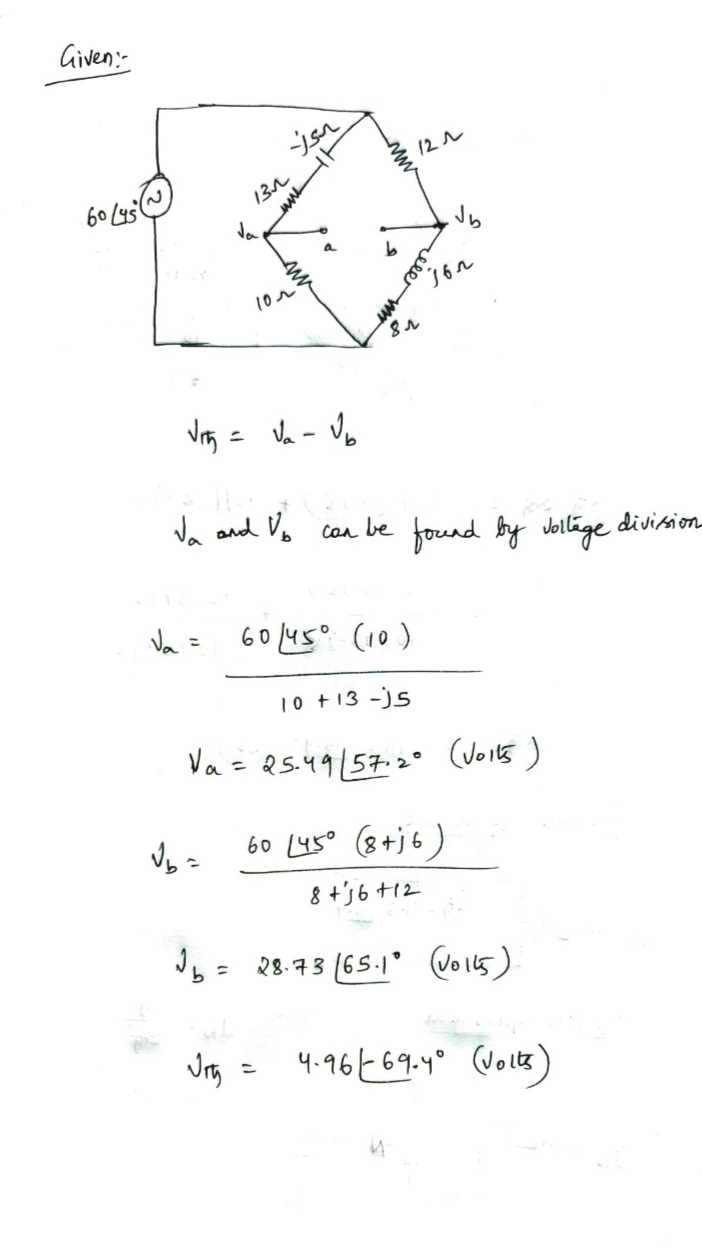 Given:-
-j5Ω
12Ω
13Ω
60∠45°
Va
a
b
Vb
j6Ω
10Ω
8Ω
Vth = Va - Vb
Va and Vb can be found by voltage division
Va = 60∠45° (10)
10 + 13 - j5
Va = 25.49∠57.2° (Volts)
Vb = 60∠45° (8+j6)
8+j6+12
Vb = 28.73∠65.1° (Volts)
Vth = 4.96∠-69.4° (Volts)